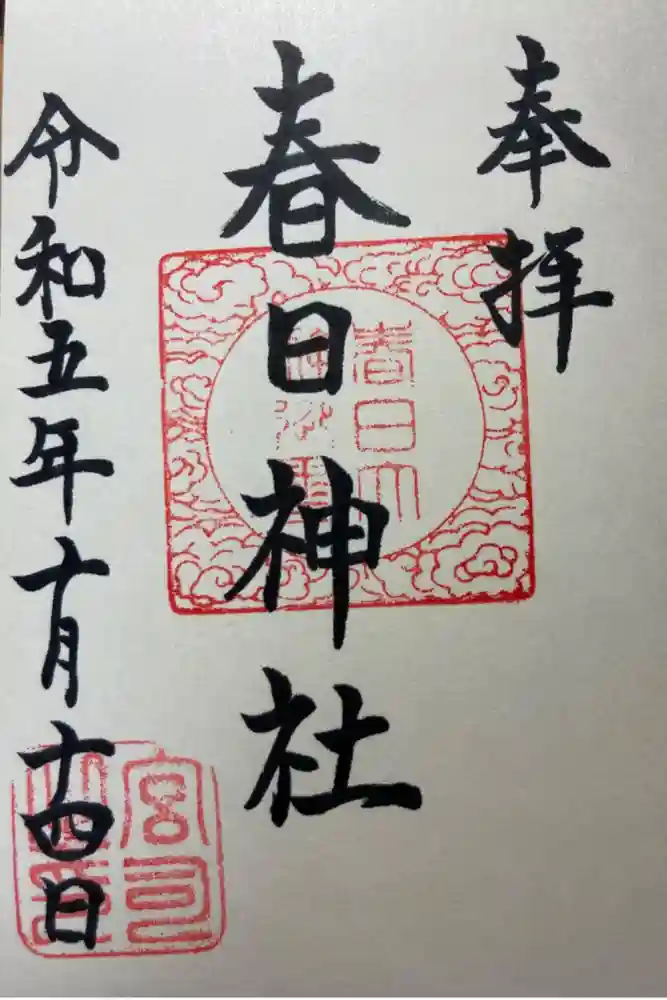 奉拝
春日神社
令和五年十月十四日
春日大
宮司